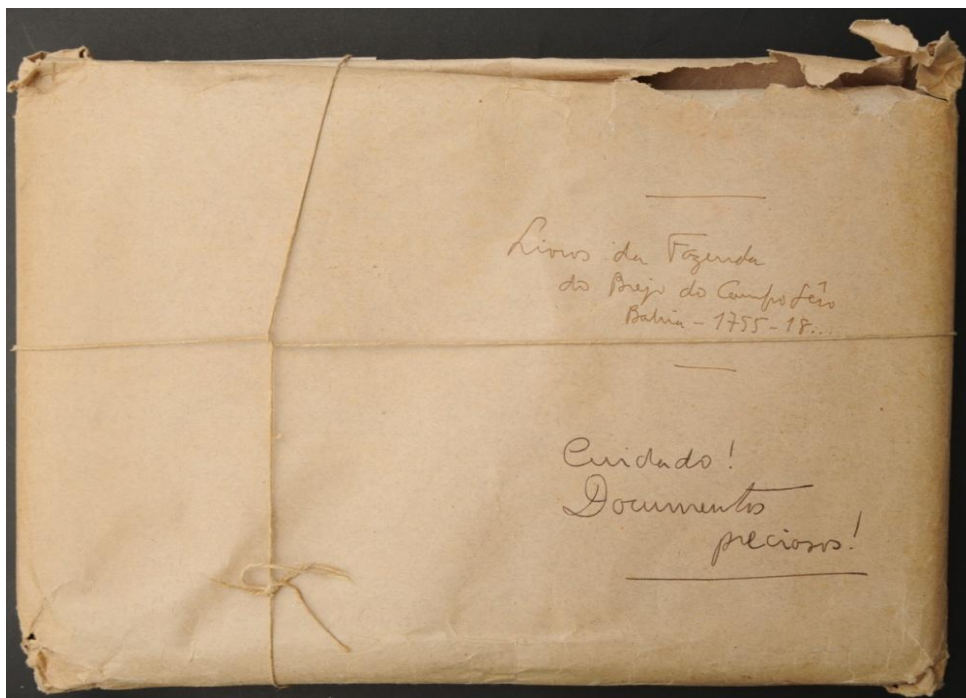 Livros da Fazenda
do Brejo do Campo Sêco
Bahia - 1755 - 18...
Cuidado!
Documentos
preciosos!